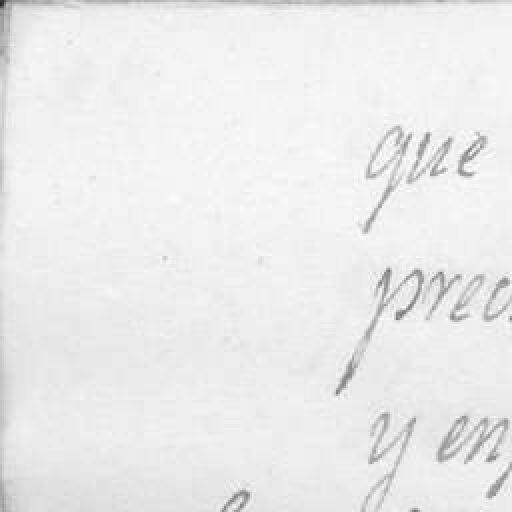 que
preo
y en